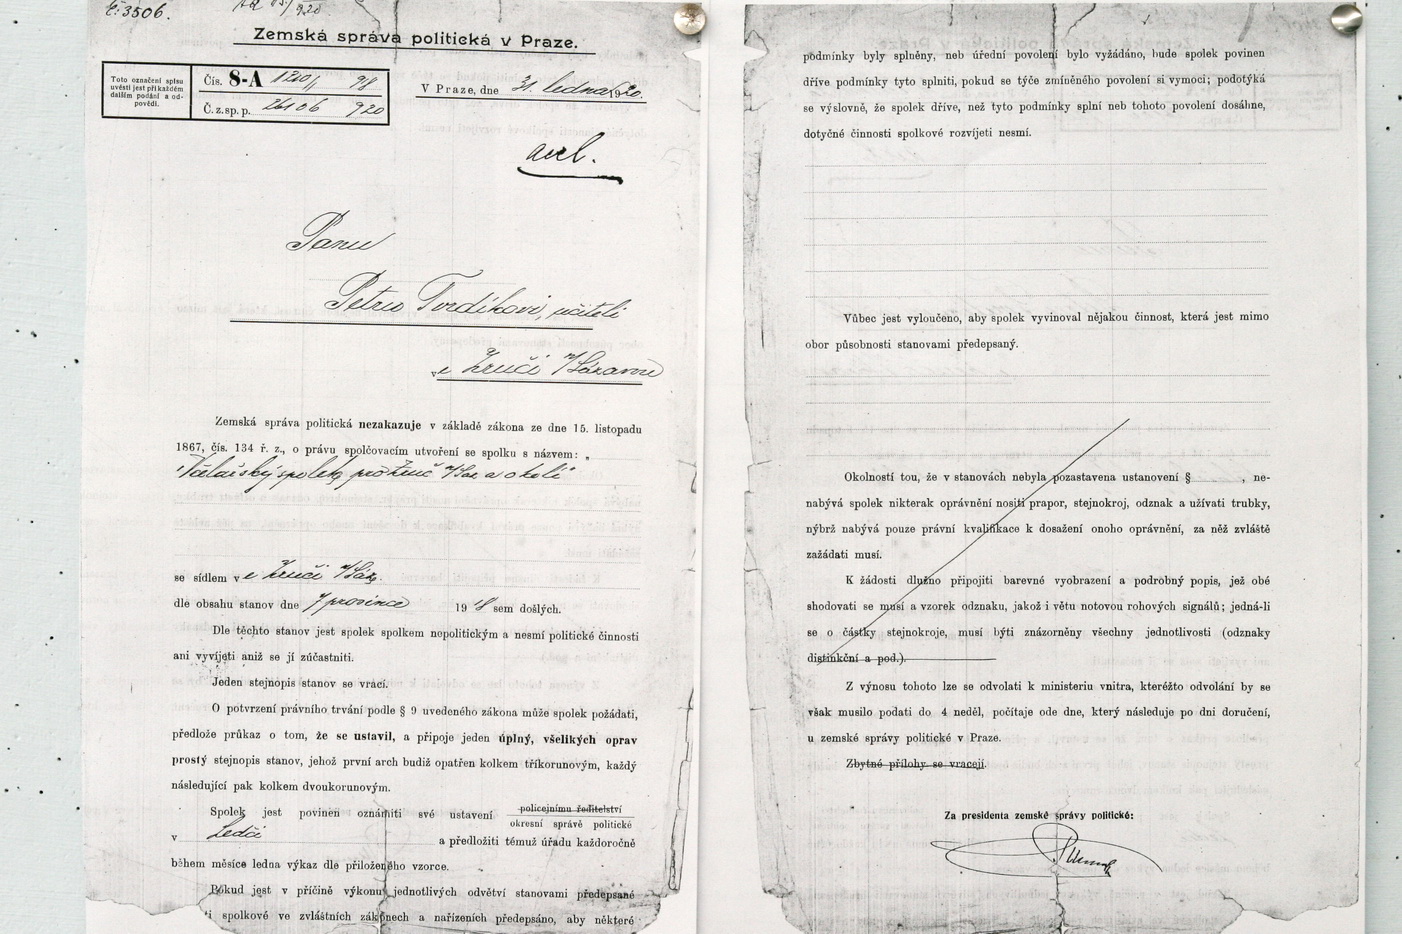 č. 3506.
Zemská správa politická v Praze.
Toto označení spisu
uvésti jest při každém
dalším podání a od-
povědi.
Čís. 8-A 98
Č. z. sp. p. 26106 920
V Praze, dne 31. ledna 1920.
Panu
Petru Tvrdíkovi, učiteli
ve Zruči n/Sázavou
Zemská správa politická nezakazuje v základě zákona ze dne 15. listopadu
1867, čís. 134 ř. z., o právu spolčovacím utvoření se spolku s názvem: „
Včelařský spolek pro Zruč n/Sáz. a okolí"
se sídlem ve Zruči n/Sáz.
dle obsahu stanov dne 7 prosince 1918 sem došlých.
Dle těchto stanov jest spolek spolkem nepolitickým a nesmí politické činnosti
ani vyvíjeti aniž se jí zúčastniti.
Jeden stejnopis stanov se vrací.
O potvrzení právního trvání podle § 9 uvedeného zákona může spolek požádati,
předlože průkaz o tom, že se ustavil, a připoje jeden úplný, všelikých oprav
prostý stejnopis stanov, jehož první arch budiž opatřen kolkem tříkorunovým, každý
následující pak kolkem dvoukorunovým.
Spolek jest povinen oznámiti své ustavení policejnímu ředitelství
okresní správě politické
v Ledči a předložiti témuž úřadu každoročně
během měsíce ledna výkaz dle přiloženého vzorce.
Pokud jest v příčině výkonu jednotlivých odvětví stanovami předepsané
spolkové ve zvláštních zákonech a nařízeních předepsáno, aby některé
podmínky byly splněny, neb úřední povolení bylo vyžádáno, bude spolek povinen
dříve podmínky tyto splniti, pokud se týče zmíněného povolení si vymoci; podotýká
se výslovně, že spolek dříve, než tyto podmínky splní neb tohoto povolení dosáhne,
dotyčné činnosti spolkové rozvíjeti nesmí.
Vůbec jest vyloučeno, aby spolek vyvinoval nějakou činnost, která jest mimo
obor působnosti stanovami předepsaný.
Okolností tou, že v stanovách nebyla pozastavena ustanovení § , ne-
nabývá spolek nikterak oprávnění nositi prapor, stejnokroj, odznak a užívati trubky,
nýbrž nabývá pouze právní kvalifikace k dosažení onoho oprávnění, za něž zvláště
zažádati musí.
K žádosti dlužno připojiti barevné vyobrazení a podrobný popis, jež obé
shodovati se musí a vzorek odznaku, jakož i větu notovou rohových signálů; jedná-li
se o částky stejnokroje, musí býti znázorněny všechny jednotlivosti (odznaky
distinkční a pod.).
Z výnosu tohoto lze se odvolati k ministeriu vnitra, kteréžto odvolání by se
však musilo podati do 4 neděl, počítaje ode dne, který následuje po dni doručení,
u zemské správy politické v Praze.
Zbytné přílohy se vracejí.
Za presidenta zemské správy politické: